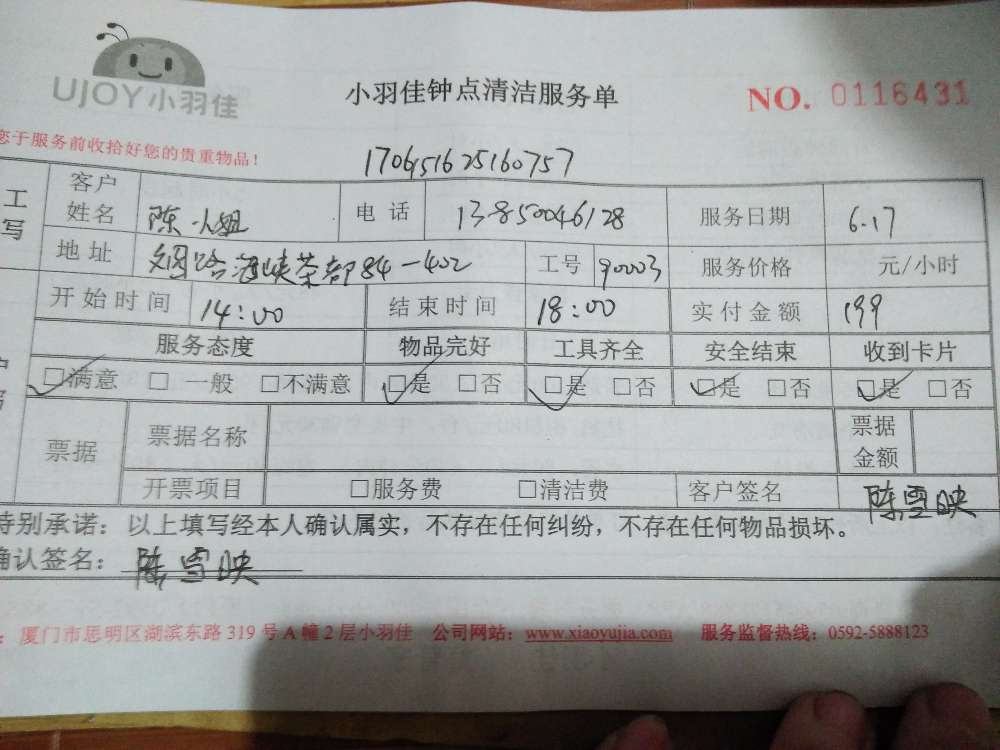 UJOY小羽佳
小羽佳钟点清洁服务单 NO. 0116431
您于服务前收拾好您的贵重物品！
170651625160757
工写 客户姓名 陈小姐 电话 13850046128 服务日期 6.17
地址 海峡茶都84-402 工号 90003 服务价格 元/小时
开始时间 14:00 结束时间 18:00 实付金额 199
服务态度 物品完好 工具齐全 安全结束 收到卡片
□满意 □一般 □不满意 □是 □否 □是 □否 □是 □否 □是 □否
票据 票据名称 票据金额
开票项目 □服务费 □清洁费 客户签名 陈雪映
特别承诺：以上填写经本人确认属实，不存在任何纠纷，不存在任何物品损坏。
确认签名：陈雪映
：厦门市思明区湖滨东路319号A幢2层小羽佳 公司网站：www.xiaoyujia.com 服务监督热线：0592-5888123